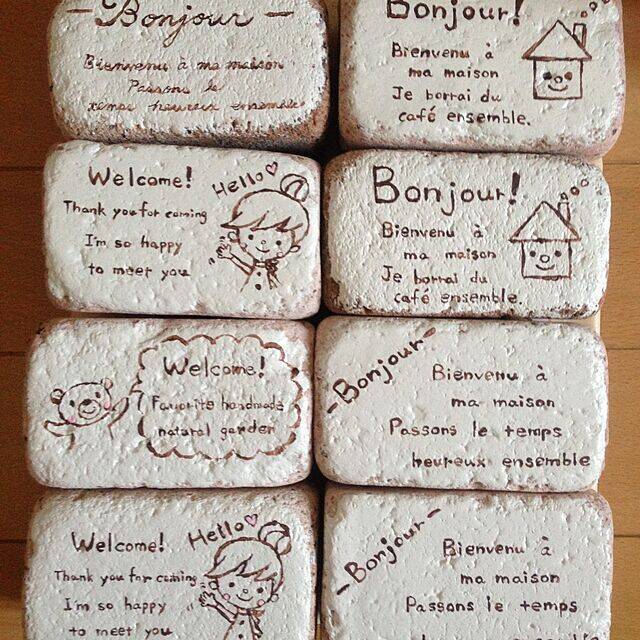 - Bonjour -
Bienvenu à ma maison
Passons le
temps heureux ensemble
Bonjour!
Bienvenu à
ma maison
Je borrai du
café ensemble.
Welcome!
Hello
Thank you for coming
I'm so happy
to meet you
Bonjour!
Bienvenu à
ma maison
Je borrai du
café ensemble.
Welcome!
Favorite handmade
natural garden
- Bonjour -
Bienvenu à
ma maison
Passons le temps
heureux ensemble
Welcome!
Hello
Thank you for coming
I'm so happy
to meet you
- Bonjour -
Bienvenu à
ma maison
Passons le temps